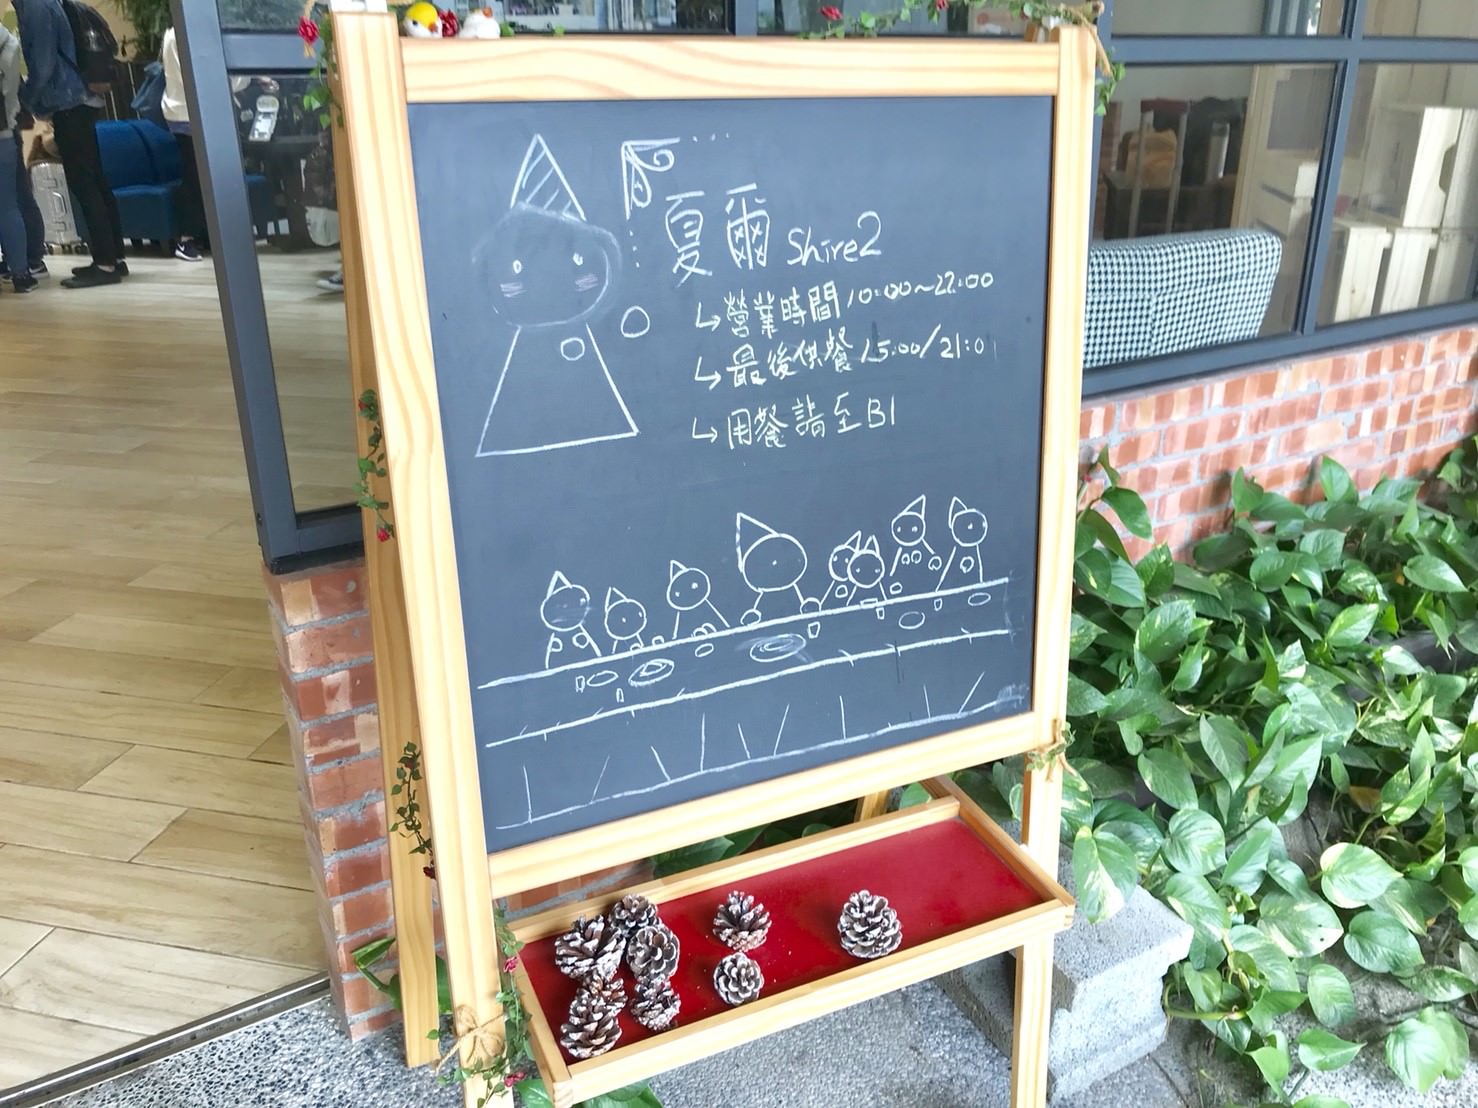 夏爾 Shire2
↳營業時間 10:00~22:00
↳最後供餐 15:00/21:0
↳用餐請至B1